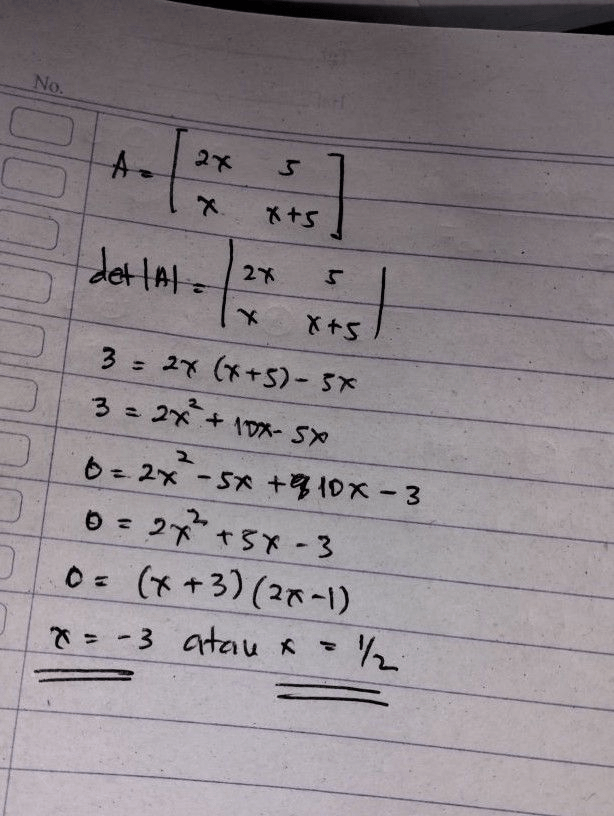 No.
A = [ 2x 5
x x+5 ]
det |A| = | 2x 5
x x+5 |
3 = 2x (x+5) - 5x
3 = 2x² + 10x - 5x
0 = 2x² - 5x + 10x - 3
0 = 2x² + 5x - 3
0 = (x + 3) (2x - 1)
x = -3 atau x = 1/2